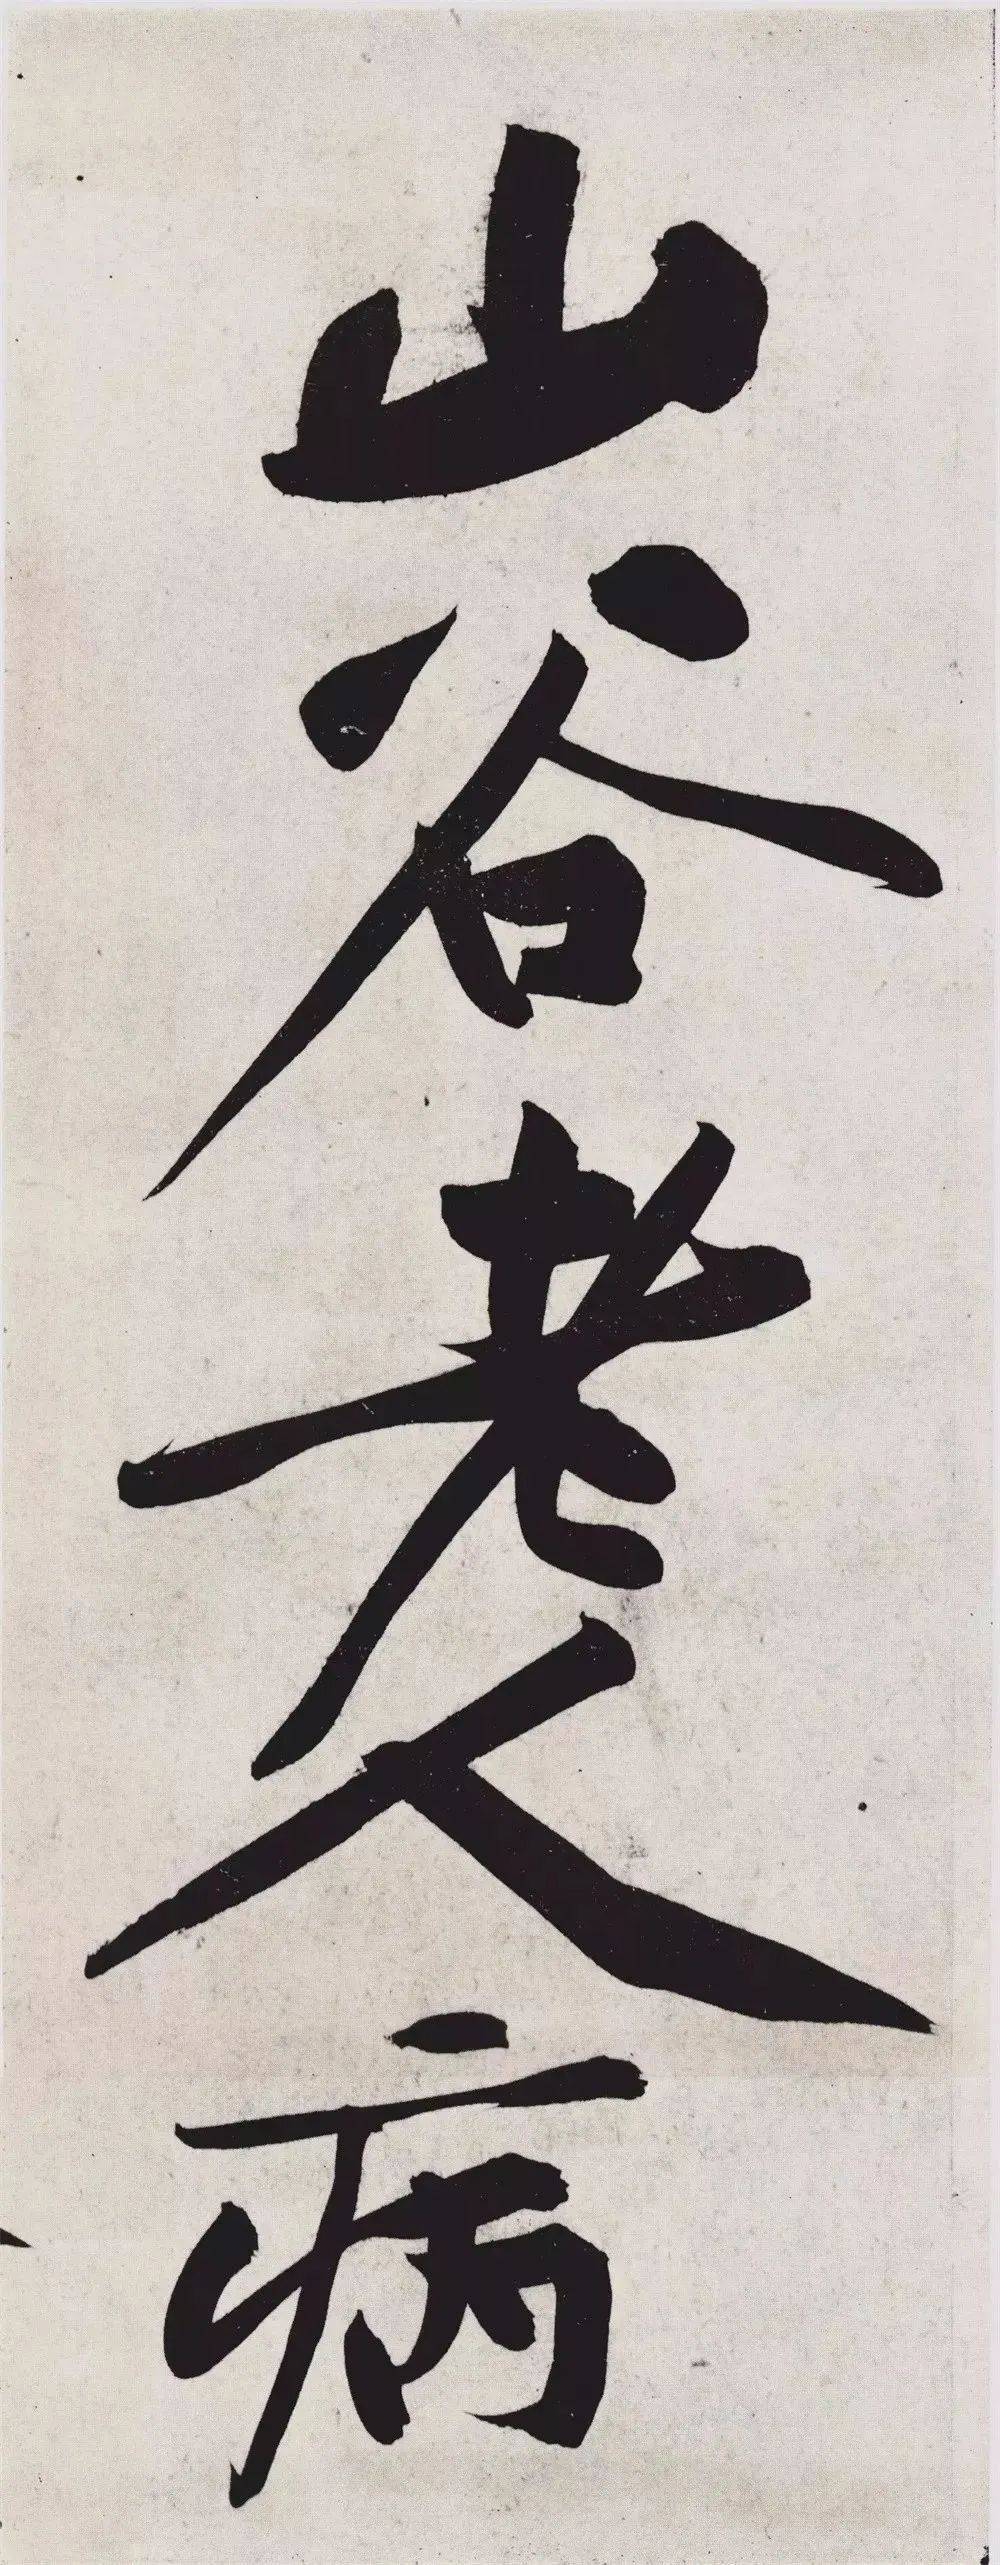 山谷老人病